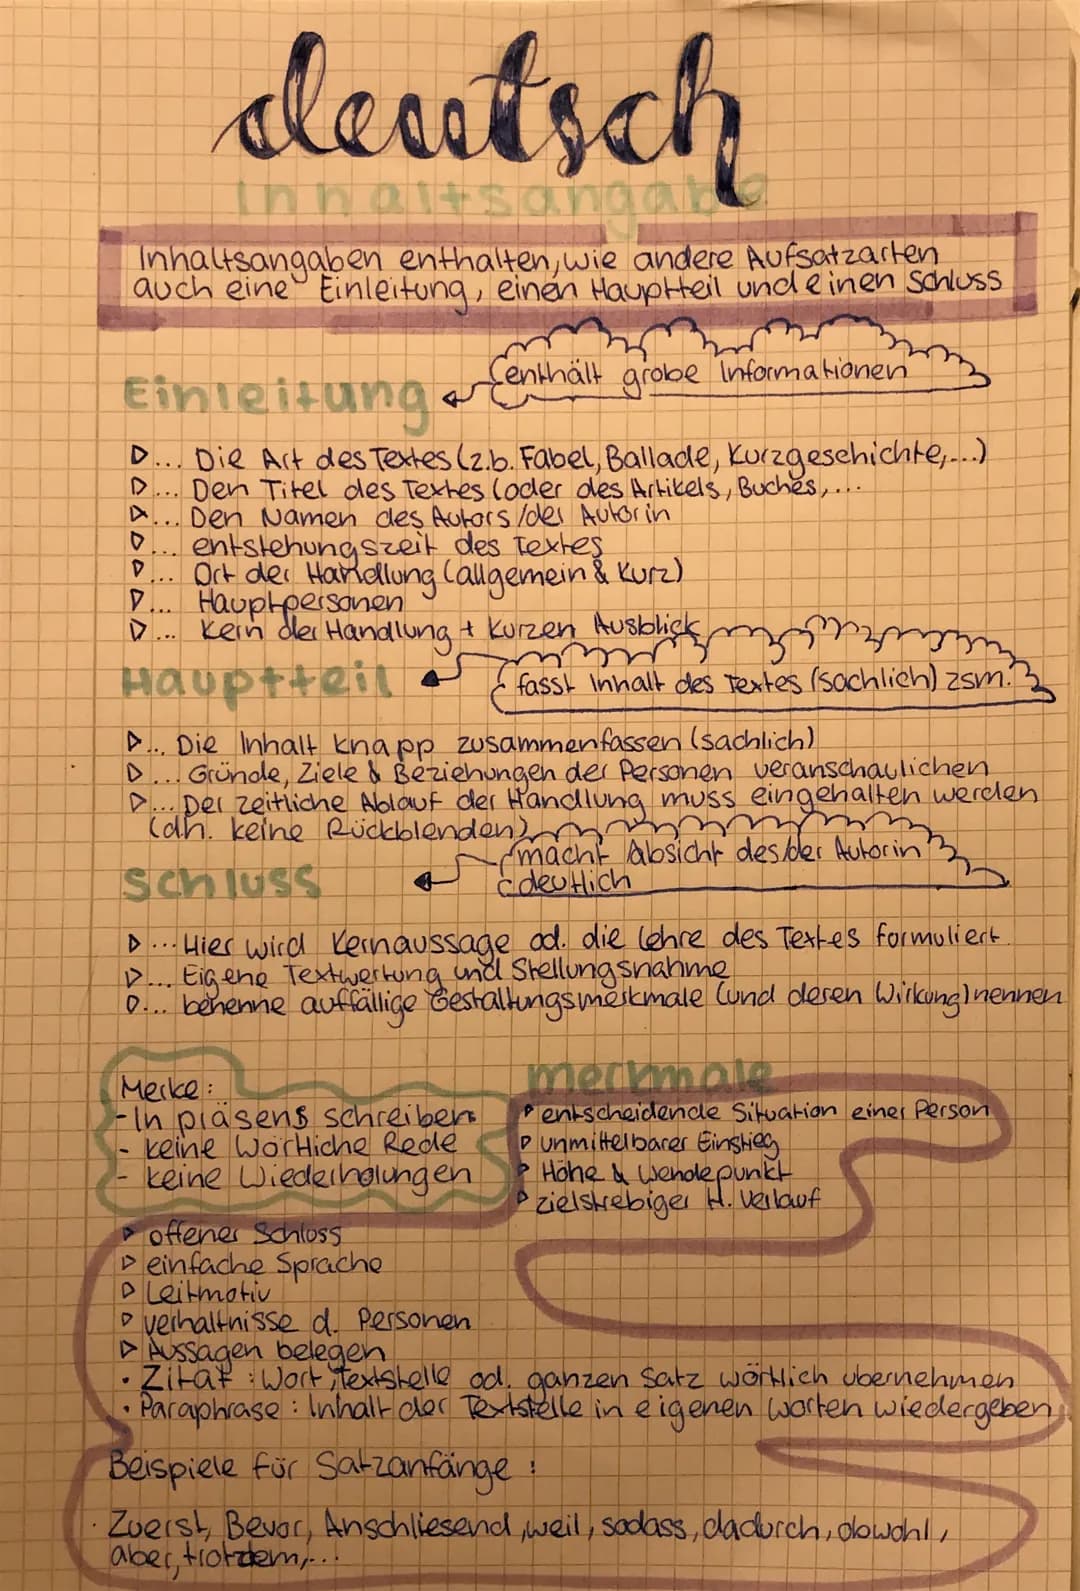 deutsch
Inhaltsangabe
Inhaltsangaben enthalten, wie andere Aufsatzarten
auch eine Einleitung, einen Hauptteil und einen Schluss
enthält grobe Informationen
Einleitung
▷... Die Art des Textes (z.b. Fabel, Ballade, Kurzgeschichte,...)
▷... Den Titel des Textes (oder des Artikels, Buches,...
▷... Den Namen des Autors/der Autorin
▷... entstehungszeit des Textes
▷... Ort der Handlung (allgemein & kurz)
▷... Hauptpersonen
▷... Kern der Handlung + kurzen Ausblick
Hauptteil
fasst Inhalt des Textes (sachlich) zsm.
▷... Die Inhalt knapp zusammenfassen (sachlich)
▷... Gründe, Ziele & Beziehungen der Personen veranschaulichen
▷... Der zeitliche Ablauf der Handlung muss eingehalten werden
(dh. keine Rückblenden)
macht Absicht des/der Autorin
deutlich
Schluss
▷... Hier wird Kernaussage od. die lehre des Textes formuliert.
▷... Eigene Textwertung und Stellungsnahme
▷... benenne auffällige Gestaltungsmerkmale (und deren Wirkung) nennen
Merke:
- In präsens schreiben
- keine Wörtliche Rede
- keine Wiederholungen
merkmale
▷ entscheidende Situation einer Person
▷ unmittelbarer Einstieg
▷ Höhe & Wendepunkt
▷ zielstrebiger H. Verlauf
▷ offener Schluss
▷ einfache Sprache
▷ Leitmotiv
▷ verhältnisse d. Personen
▷ Aussagen belegen
• Zitat : Wort, Textstelle od. ganzen Satz wörtlich übernehmen
• Paraphrase : Inhalt der Textstelle in eigenen worten wiedergeben
Beispiele für Satzanfänge :
Zuerst, Bevor, Anschliesend, weil, sodass, dadurch, obwohl,
aber, trotzdem,...